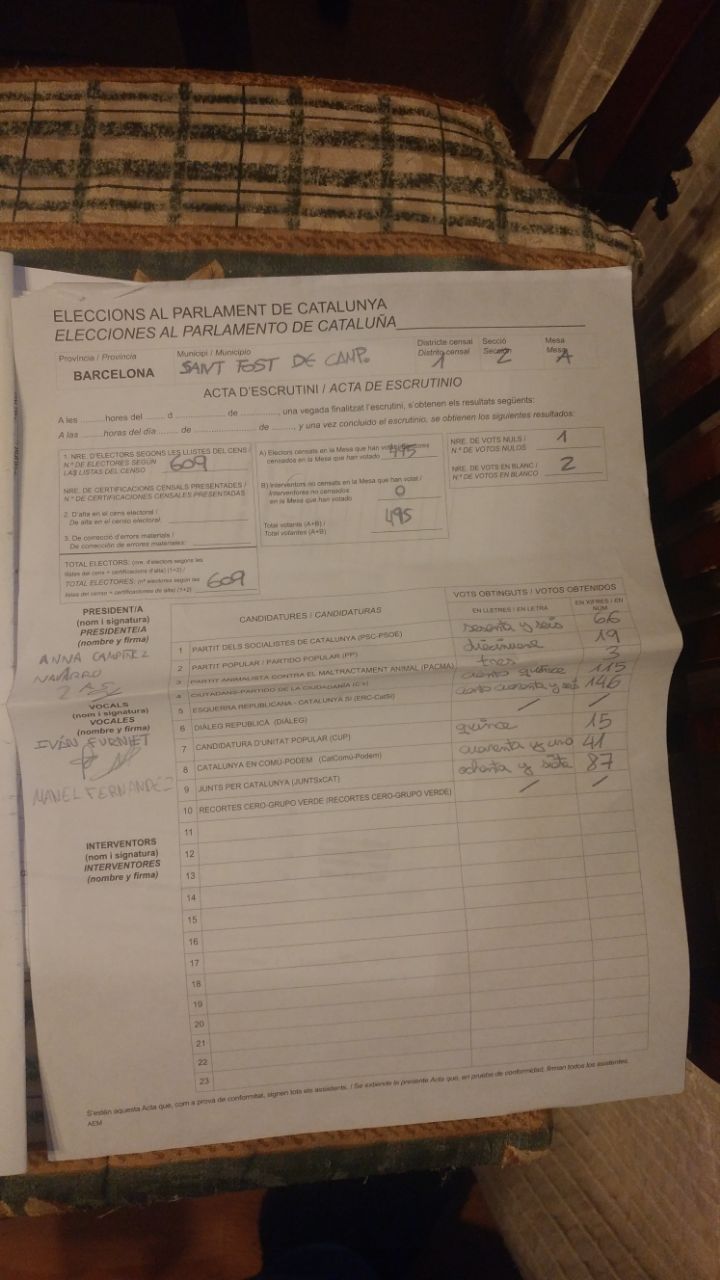 ELECCIONS AL PARLAMENT DE CATALUNYA
ELECCIONES AL PARLAMENTO DE CATALUÑA
Província / Provincia
BARCELONA
Municipi / Municipio
SAINT FOST DE CAMP.
Districte censal
Distrito censal
1
Secció
Sección
2
Mesa
Mesa
A
ACTA D'ESCRUTINI / ACTA DE ESCRUTINIO
A les ........hores del ...... d ................ de ............., una vegada finalitzat l'escrutini, s'obtenen els resultats següents:
A las ........horas del día ...... de ................ de ............., y una vez concluido el escrutinio, se obtienen los siguientes resultados:
1. NRE. D'ELECTORS SEGONS LES LLISTES DEL CENS /
N.º DE ELECTORES SEGÚN
LAS LISTAS DEL CENSO
609
NRE. DE CERTIFICACIONS CENSALS PRESENTADES /
N.º DE CERTIFICACIONES CENSALES PRESENTADAS
2. D'alta en el cens electoral /
De alta en el censo electoral:
3. De correcció d'errors materials /
De corrección de errores materiales:
TOTAL ELECTORS: (nre. d'electors segons les
llistes del cens + certificacions d'alta) (1+2) /
TOTAL ELECTORES: (nº electores según las
listas del censo + certificaciones de alta) (1+2)
609
A) Electors censats en la Mesa que han votat / Electores
censados en la Mesa que han votado
495
B) Interventors no censats en la Mesa que han votat /
Interventores no censados
en la Mesa que han votado
0
Total votants (A+B) /
Total votantes (A+B)
495
NRE. DE VOTS NULS /
N.º DE VOTOS NULOS
1
NRE. DE VOTS EN BLANC /
N.º DE VOTOS EN BLANCO
2
PRESIDENT/A
(nom i signatura)
PRESIDENTE/A
(nombre y firma)
ANNA
NAVARRO
VOCALS
(nom i signatura)
VOCALES
(nombre y firma)
IVÁN FURNIET
MANEL FERNANDEZ
INTERVENTORS
(nom i signatura)
INTERVENTORES
(nombre y firma)
CANDIDATURES / CANDIDATURAS
VOTS OBTINGUTS / VOTOS OBTENIDOS
EN LLETRES / EN LETRA
EN XIFRES / EN NÚM
1 PARTIT DELS SOCIALISTES DE CATALUNYA (PSC-PSOE) sesenta y seis 66
2 PARTIT POPULAR / PARTIDO POPULAR (PP) diecinueve 19
3 PARTIT ANIMALISTA CONTRA EL MALTRACTAMENT ANIMAL (PACMA) tres 3
4 CIUTADANS-PARTIDO DE LA CIUDADANÍA (C's) ciento quince 115
5 ESQUERRA REPUBLICANA - CATALUNYA SÍ (ERC-CatSí) ciento cuarenta y seis 146
6 DIÀLEG REPUBLICÀ (DIÀLEG) / /
7 CANDIDATURA D'UNITAT POPULAR (CUP) quince 15
8 CATALUNYA EN COMÚ-PODEM (CatComú-Podem) cuarenta y uno 41
9 JUNTS PER CATALUNYA (JUNTSxCAT) ochenta y siete 87
10 RECORTES CERO-GRUPO VERDE (RECORTES CERO-GRUPO VERDE) / /
11
12
13
14
15
16
17
18
19
20
21
22
23
S'estén aquesta Acta que, com a prova de conformitat, signen tots els assistents. / Se extiende la presente Acta que, en prueba de conformidad, firman todos los asistentes.
AEM